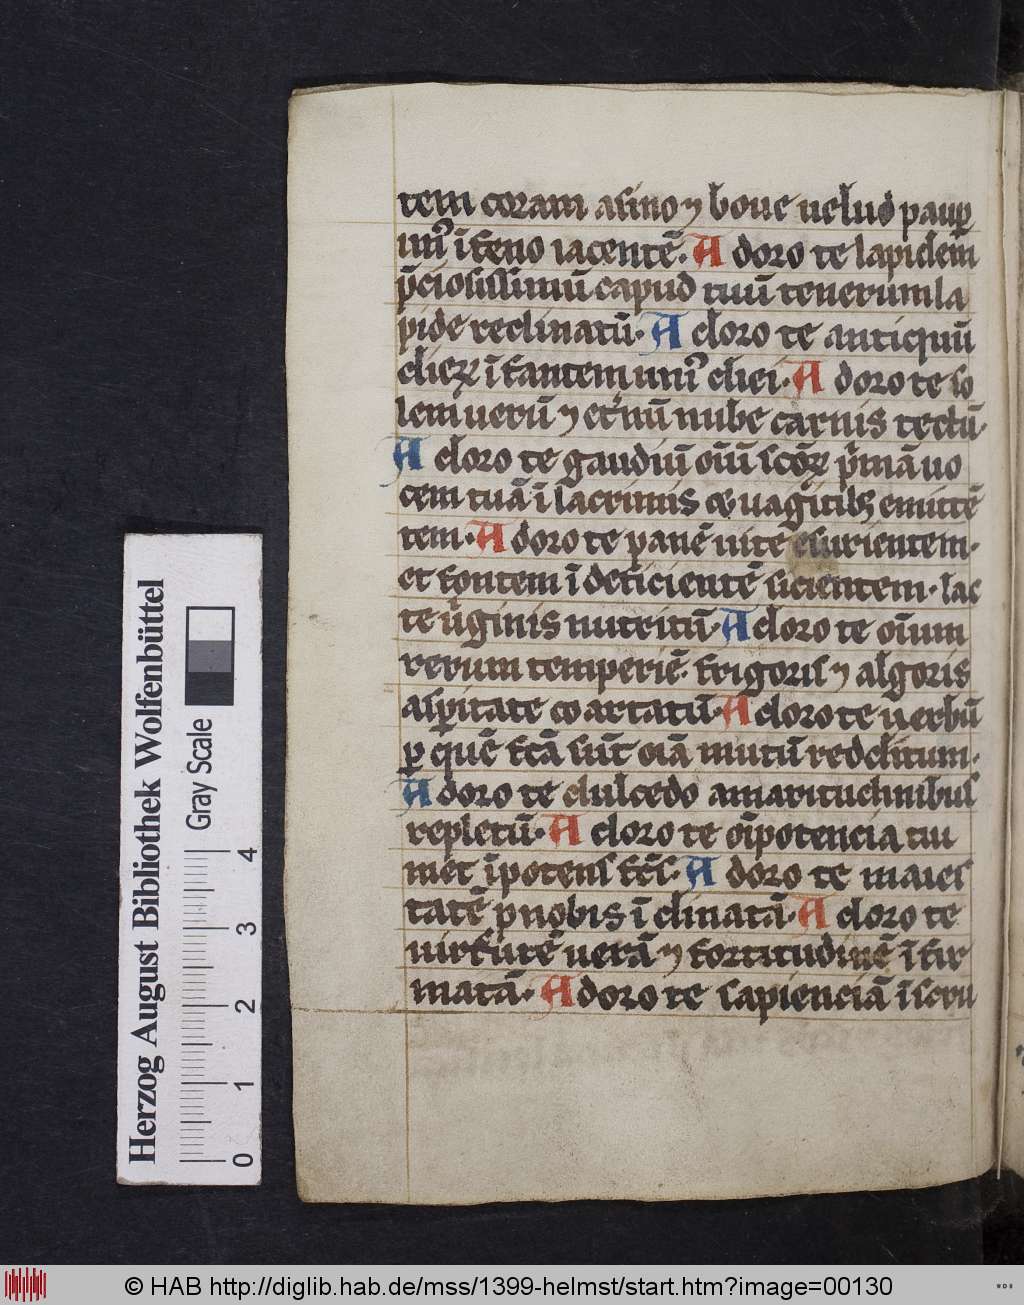 tem coram asino ⁊ boue uelud paup̲
im̅ i̅ feno iacente̅. A doro te lapidem
p̅ciosissimu̅ capud tuu̅ tenerum la
pide reclinatu̅. A doro te antiquu̅
dieꝝ i̅fantem uni᷒ diei. A doro te so
lem ueru̅ ⁊ et̉nu̅ nube carnis tectu̅.
A doro te gaudiu̅ oi̅u̅ sc̅oꝝ p̉ma̅ uo
cem tua̅ i̅ lacrimis & uagitibꝫ emitte̅
tem. A doro te pane̅ uite esurientem.
et fontem i̅deficiente̅ sicientem. lac
te ủginis nutritu̅. A doro te oi̅um
rerum temperie̅. frigoris ⁊ algoris
asp̲itate coartatu̅. A doro te uerbu̅
ꝑ que̅ fc̅a su̅t oi̅a mutu̅ redditum.
A doro te dulcedo amaritudinibus
repletu̅. A doro te oi̅potencia tui
met i̅potens fc̅s. A doro te maies
tate̅ p nobis i̅clinata̅. A doro te
uirtute̅ uera̅ ⁊ fortitudine̅ i̅fir
mata̅. A doro te sapiencia̅ i̅scru
Herzog August Bibliothek Wolfenbüttel
Gray Scale
0 1 2 3 4
© HAB http://diglib.hab.de/mss/1399-helmst/start.htm?image=00130